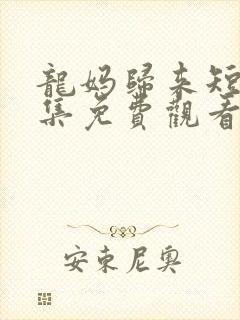 龍媽歸來短
集免費觀看
安東尼奧